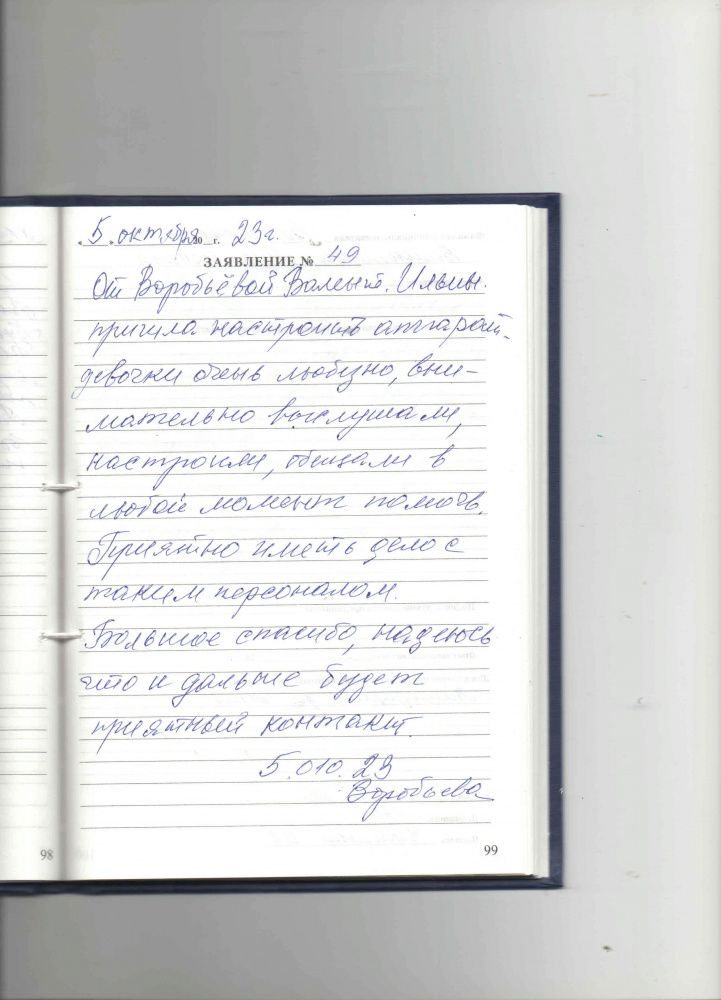 5 октября 20 г. 23г.
ЗАЯВЛЕНИЕ № 49
От Воробьёвой Валент. Ильин.
пришла настроить аппарат.
девочки очень любезно, вни-
мательно выслушали,
настроили, обещали в
любой момент помочь.
Приятно иметь дело с
таким персоналом.
Большое спасибо, надеюсь
что и дальше будет
приятный контакт.
5.010.23
Воробьева
98
99